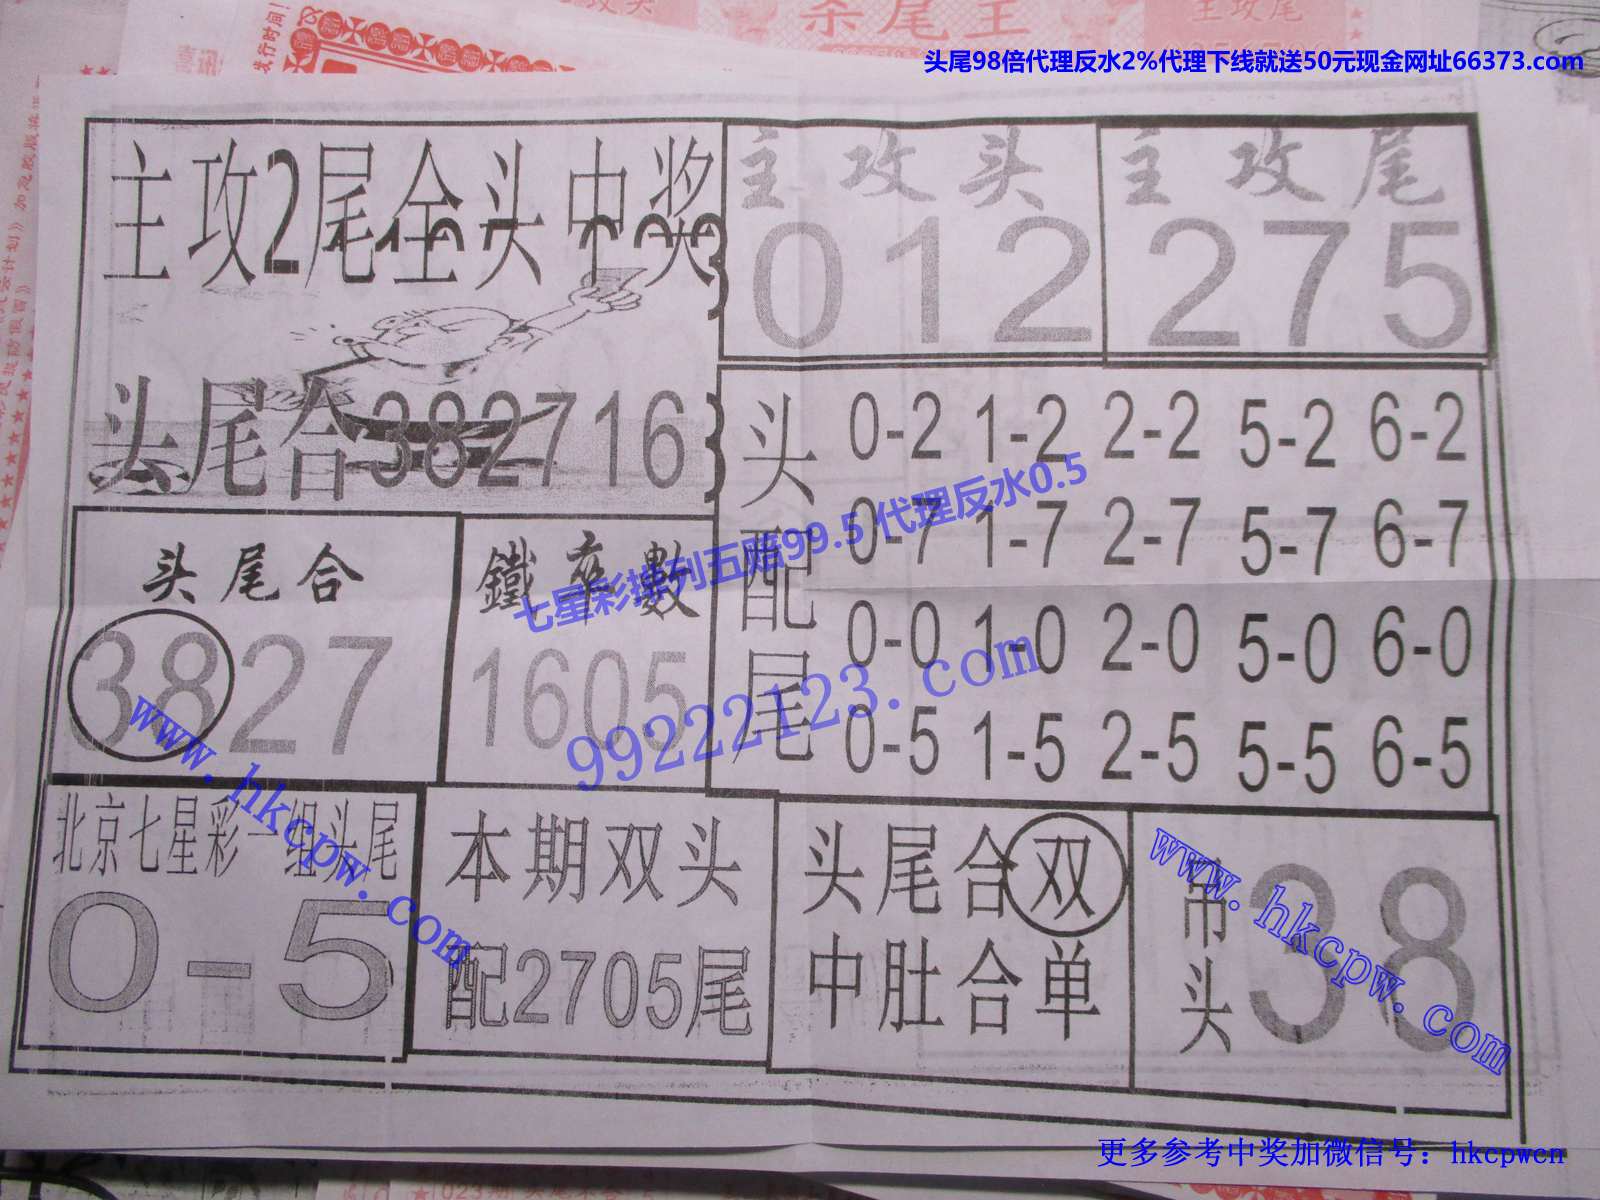 杀尾王
主攻尾
头尾98倍代理反水2%代理下线就送50元现金网址66373.com
主攻2尾全头中奖
头尾合382716
主攻头
012
主攻尾
275
头配尾
0-2 1-2 2-2 5-2 6-2
0-7 1-7 2-7 5-7 6-7
0-0 1-0 2-0 5-0 6-0
0-5 1-5 2-5 5-5 6-5
头尾合
3827
鐵卒數
1605
七星彩排列五赔99.5 代理反水0.5
99222123.com
www.hkcpw.com
北京七星彩一组头尾
0-5
本期双头
配2705尾
头尾合双
中肚合单
吊头
38
www.hkcpw.com
更多参考中奖加微信号：hkcpwcn